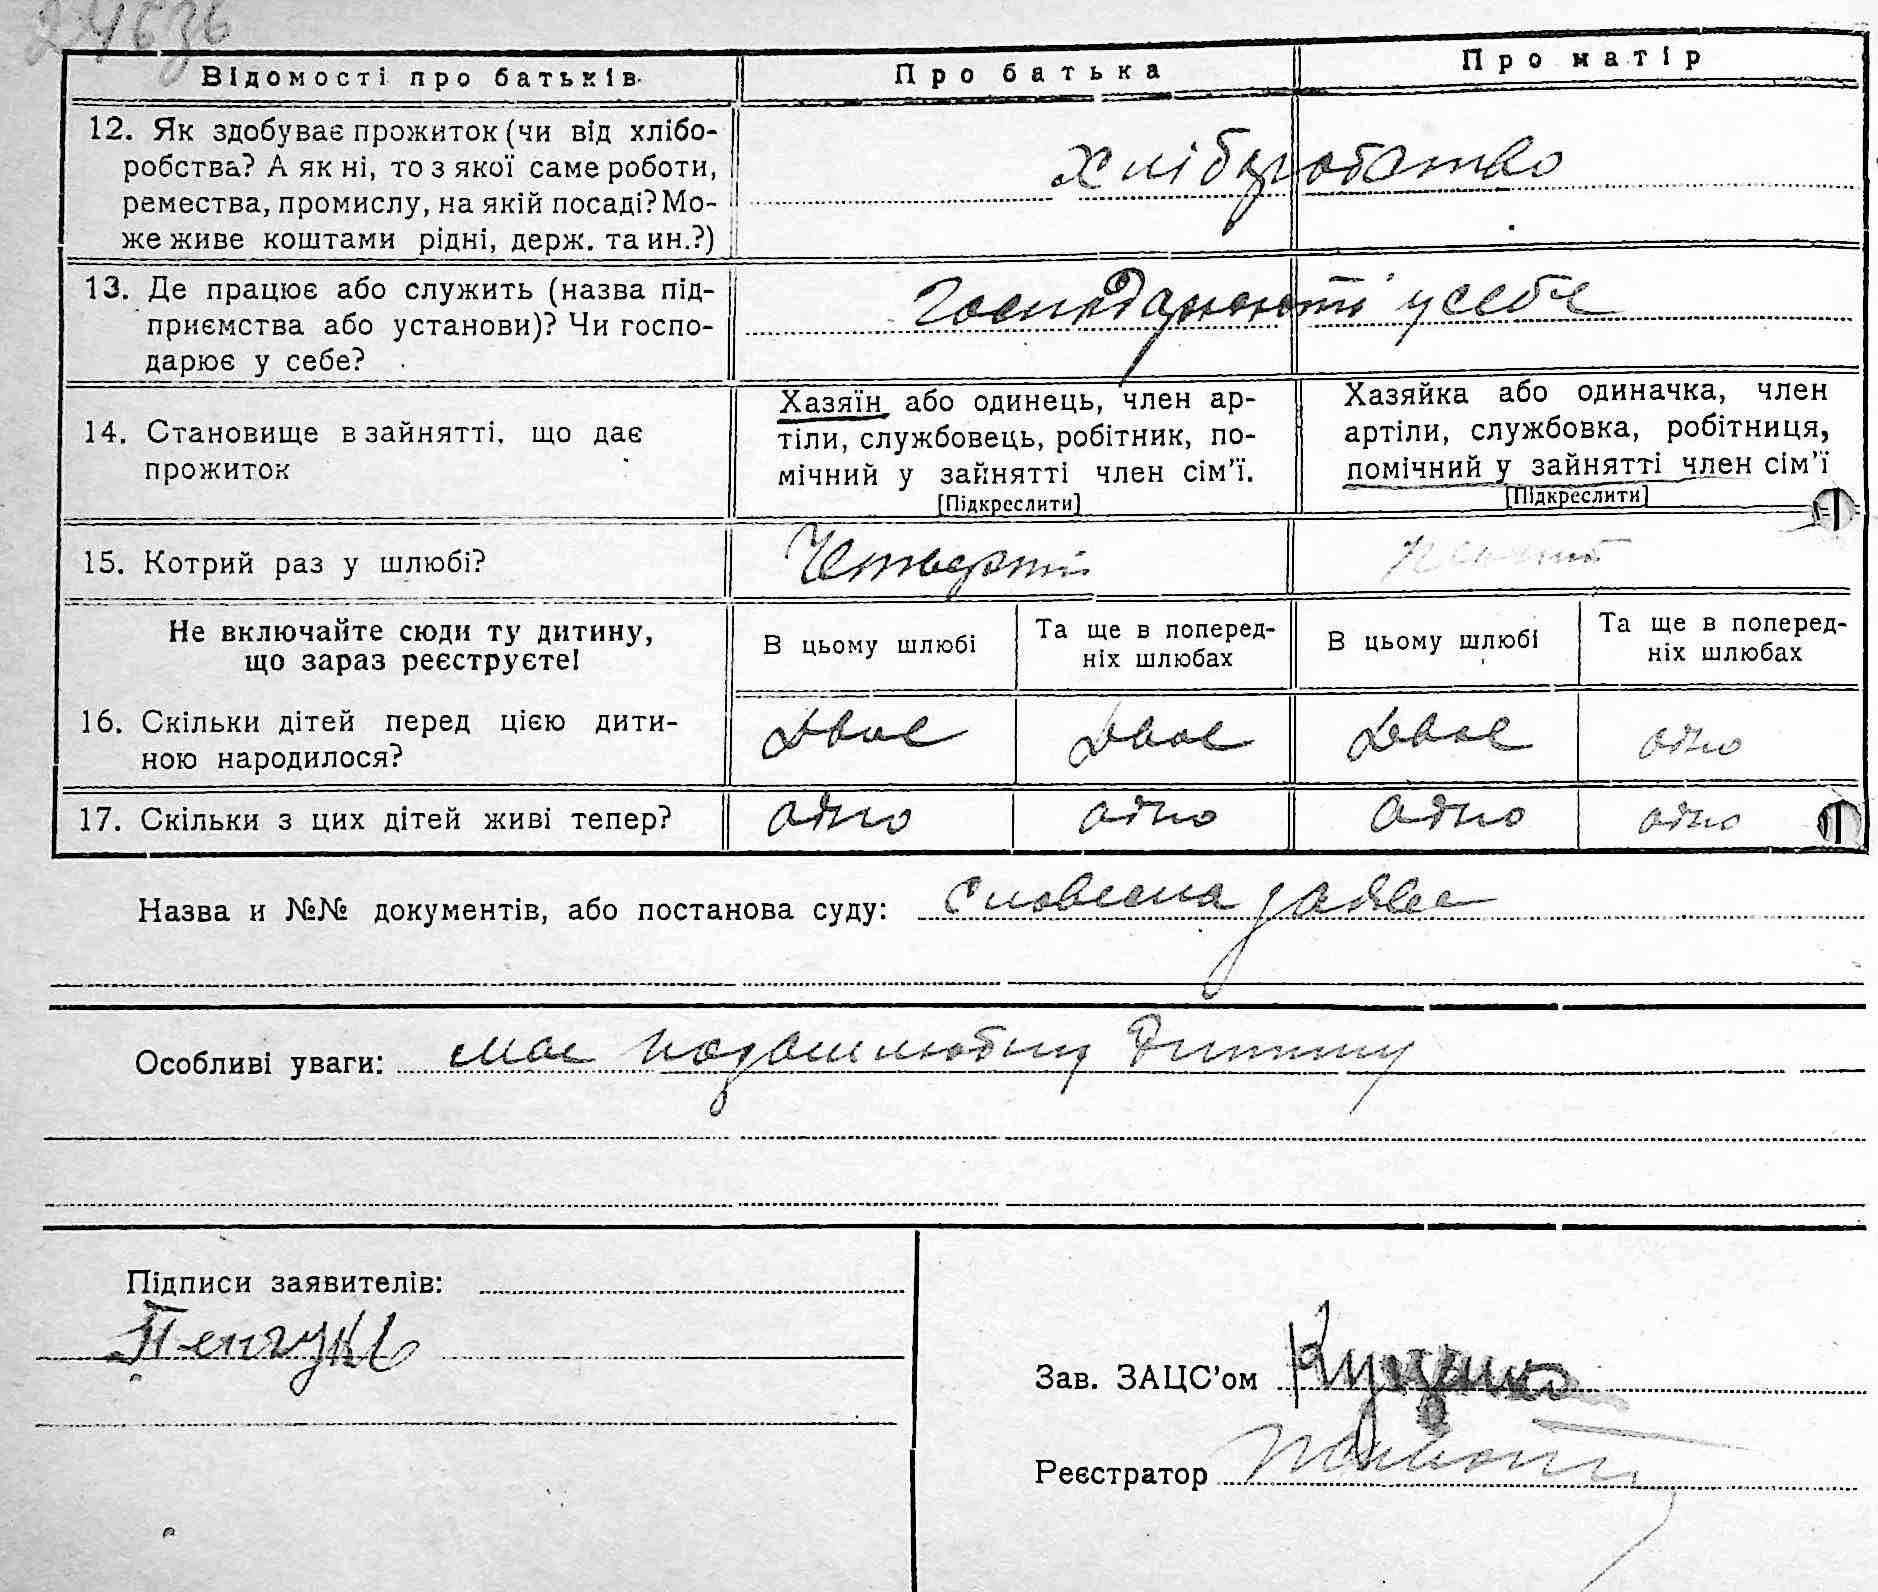 Відомості про батьків Про батька Про матір
12. Як здобуває прожиток (чи від хлібо-
робства? А як ні, то з якої саме роботи,
ремества, промислу, на якій посаді? Мо-
же живе коштами рідні, держ. та ин.?)
хліборобство
13. Де працює або служить (назва під-
приємства або установи)? Чи госпо-
дарює у себе?
господарюють у себе
14. Становище в зайнятті, що дає
прожиток
Хазяїн або одинець, член ар-
тіли, службовець, робітник, по-
мічний у зайнятті член сім’ї.
[Підкреслити]
Хазяйка або одиначка, член
артіли, службовка, робітниця,
помічний у зайнятті член сім’ї
[Підкреслити]
15. Котрий раз у шлюбі? Четвертий
Не включайте сюди ту дитину,
що зараз реєструєте!
В цьому шлюбі
Та ще в поперед-
ніх шлюбах
В цьому шлюбі
Та ще в поперед-
ніх шлюбах
16. Скільки дітей перед цією дити-
ною народилося?
Двоє Двоє Двоє одно
17. Скільки з цих дітей живі тепер? одно одно одно одно
Назва и №№ документів, або постанова суду: Словесна заява
Особливі уваги: має позашлюбну дитину
Підписи заявителів:
Зав. ЗАЦС’ом
Реєстратор